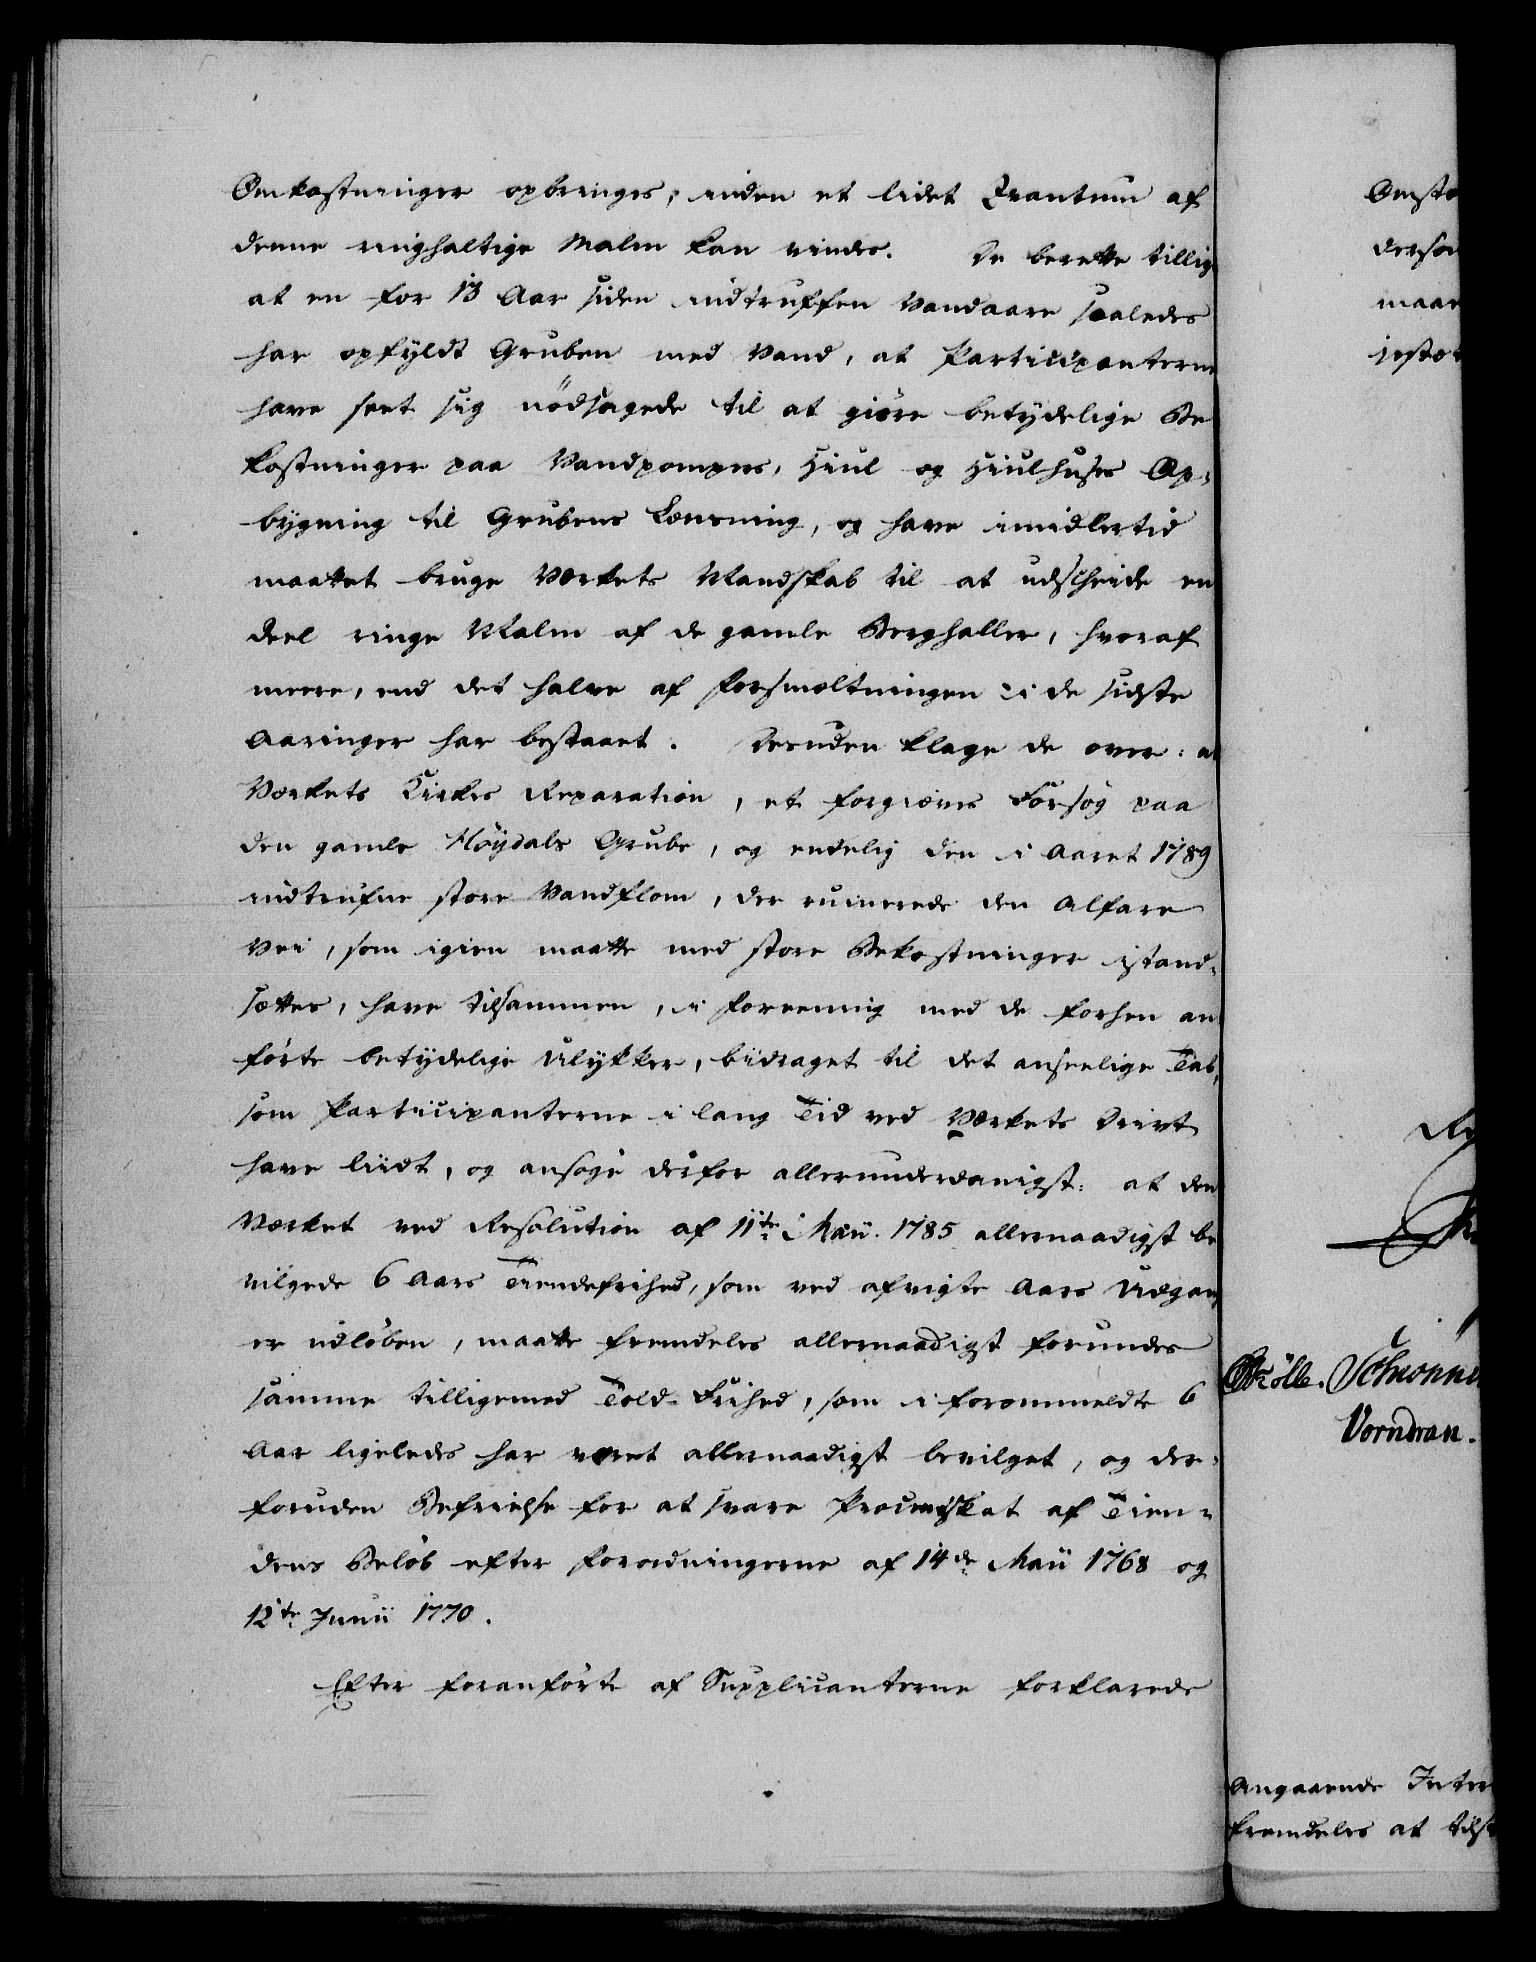 Omkostninger opbringes, inden et lidet Qvantum af
denne ringhaltige Malm kan vindes. De berette tillig
at en for 13 Aar siden indtruffen Vandaare saaledes
har opfyldt Gruben med Vand, at Participanterne
have seet sig nödsagede til at giöre betydelige Be
kostninger paa Vandpompers, Hiul og Hiulhuses Op-
bygning til Grubens Lænsning, og have imidlertid
maattet bruge Værkets Mandskab til at udscheide en
deel ringe Malm af de gamle Berghaller, hvoraf
meere, end det halve af Forsmæltningen i de sidste
Aaringer har bestaaet. Desuden klage de over: at
Værkets Kirkes Reparation, et forgiæves Forsøg paa
den gamle Höydals Grube, og endelig den i Aaret 1789
indtrufne store Vandflom, der ruinerede den Alfare
Vei, som igien maatte med store Bekostninger istand-
sættes, have tilsammen, i Foreening med de forhen an
førte betydelige Ulykker, bidraget til det anseelige Tab,
som Participanterne i lang Tid ved Værkets Drivt
have liidt, og ansøge derfor allerunderdanigst: at den
Værket ved Resolution af 11te Maii 1785 allernaadigst be
vilgede 6 Aars Tiendefrihed, som ved afvigte Aars Udgang
er udløben, maatte fremdeles allernaadigst forundes
samme tilligemed Told-Frihed, som i forommeldte 6
Aar ligeledes har været allernaadigst bevilget, og der-
foruden Befrielse for at svare Procentskat af Tien-
dens Beløb efter Forordningerne af 14de Maii 1768 og
12te Junii 1770.
Efter foranførte af Supplicanterne forklarede
Omstæ
derfor
maar
istæ
Schiönn
Vorndran.
Angaaende Inter
fremdeles at tilst